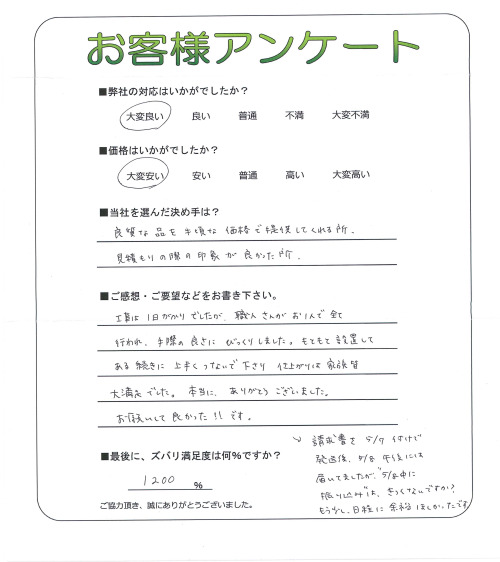 お客様アンケート
■弊社の対応はいかがでしたか？
大変良い 良い 普通 不満 大変不満
■価格はいかがでしたか？
大変安い 安い 普通 高い 大変高い
■当社を選んだ決め手は？
良質な品を手頃な価格で提供してくれる所.
見積もりの際の印象が良かった所.
■ご感想・ご要望などをお書き下さい。
工事は1日がかりでしたが、職人さんがお1人で全て
行われ、手際の良さにびっくりしました。もともと設置して
ある続きに上手くつないで下さり 仕上がりは家族皆
大満足でした。本当に、ありがとうございました。
お願いして良かった!!です。
■最後に、ズバリ満足度は何％ですか？
1200 ％
ご協力頂き、誠にありがとうございました。
請求書を5/7付けで
発送後、5/8午後には
届いてましたが、5/8中に
振り込みは、きつくないですか？
もう少し、日程に余裕ほしかったです